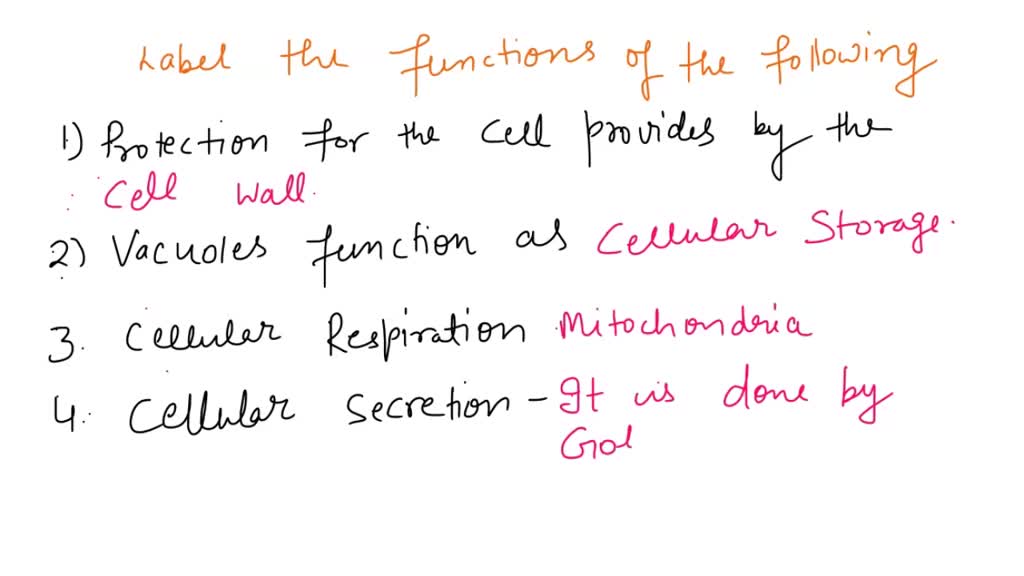 Label the functions of the following
1) Protection for the cell provides by the
Cell Wall.
2) Vacuoles function as Cellular Storage.
3. Cellular Respiration Mitochondria
4. Cellular Secretion - It is done by
Gol